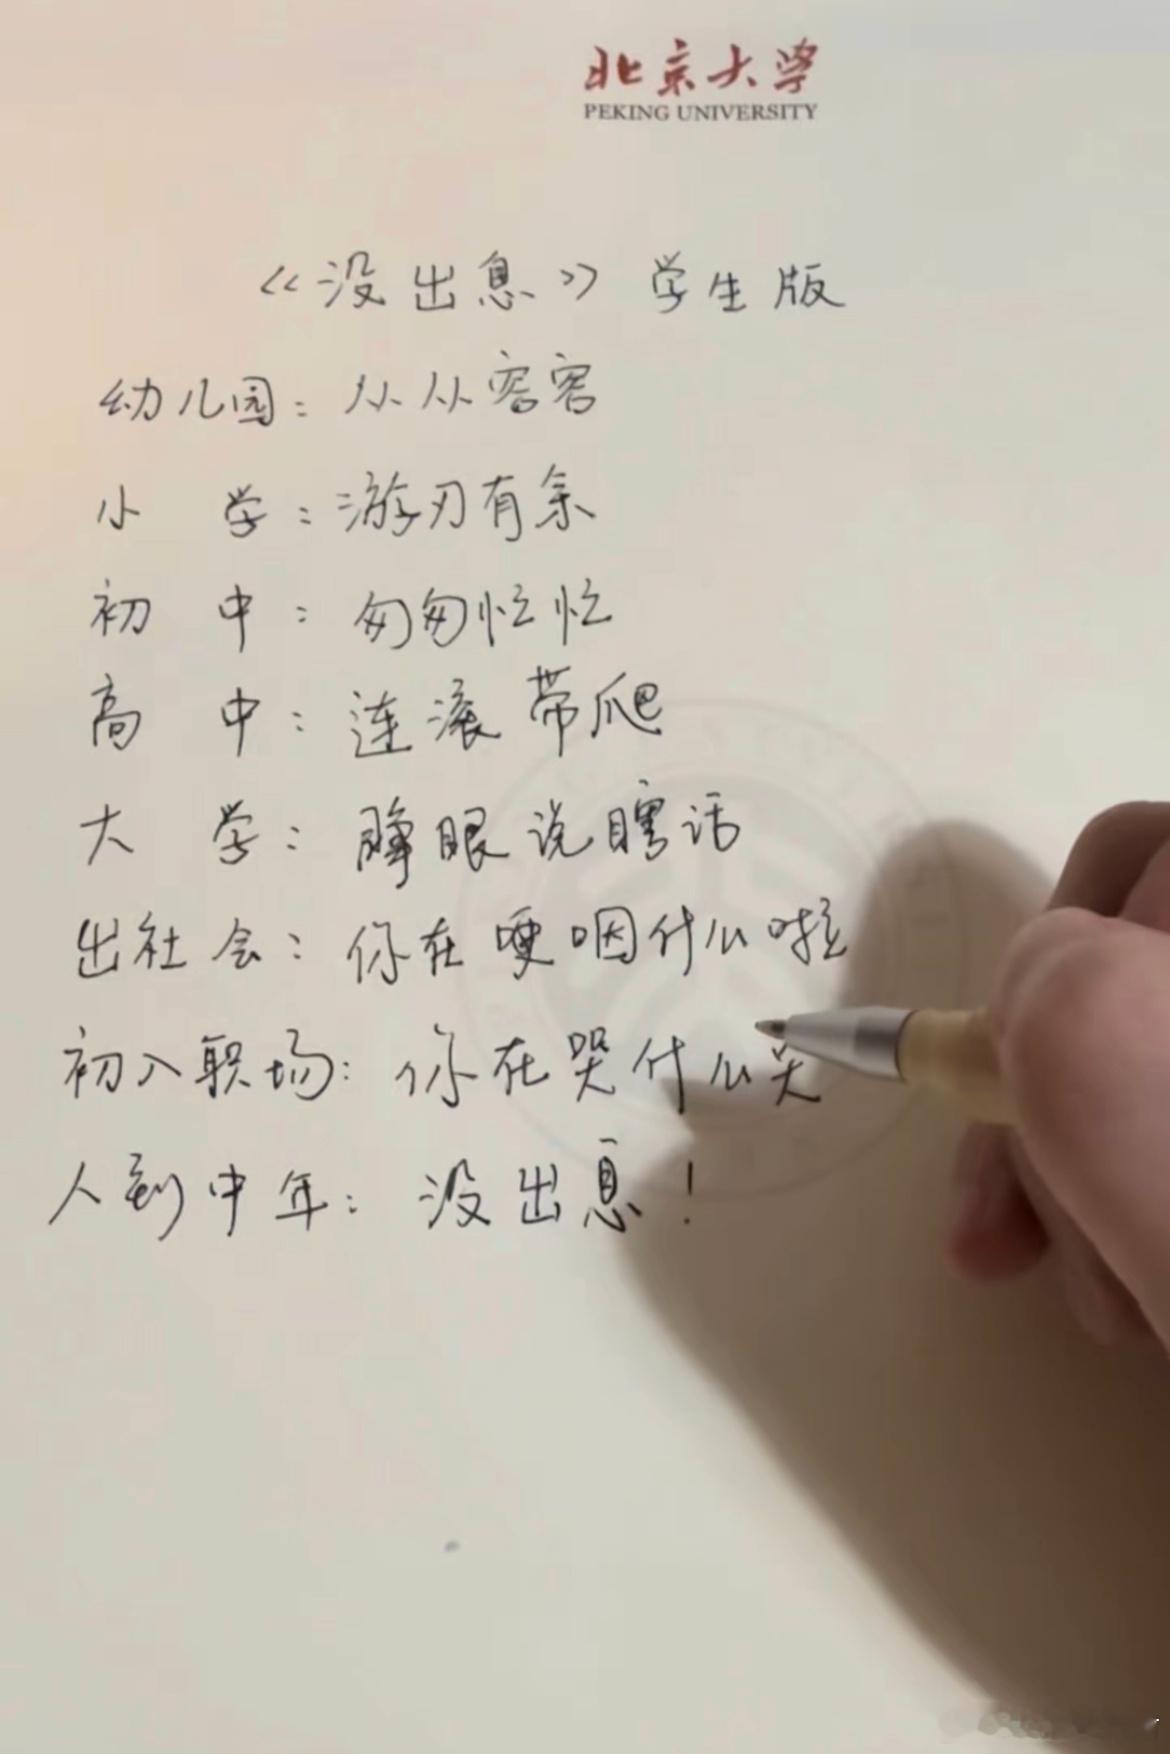 北京大学
PEKING UNIVERSITY
《没出息》学生版
幼儿园：从从容容
小 学：游刃有余
初 中：匆匆忙忙
高 中：连滚带爬
大 学：睁眼说瞎话
出社会：你在哽咽什么啦
初入职场：你在哭什么哭
人到中年：没出息！